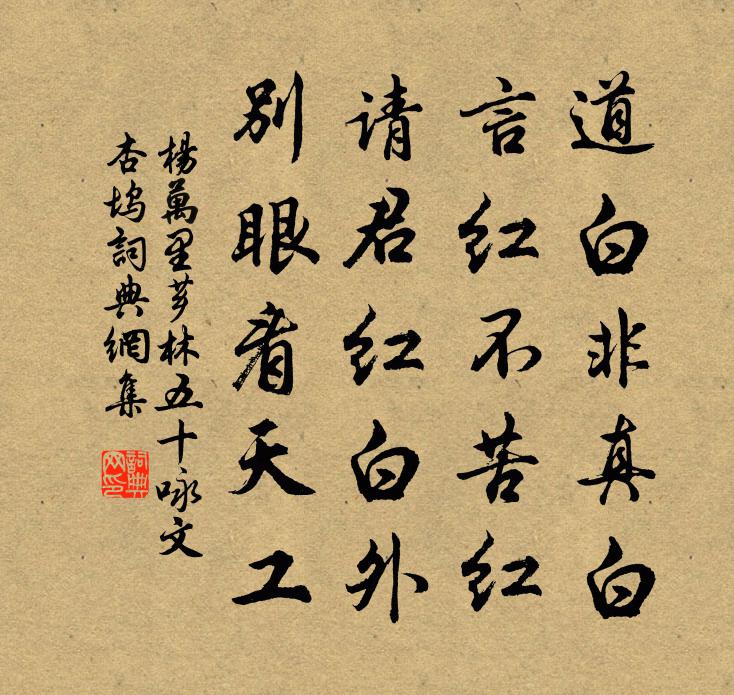 道白非真白
言红不苦红
请君红白外
别眼看天工
楊萬里芗林五十咏文
杏坞詞典網集
詞典网印